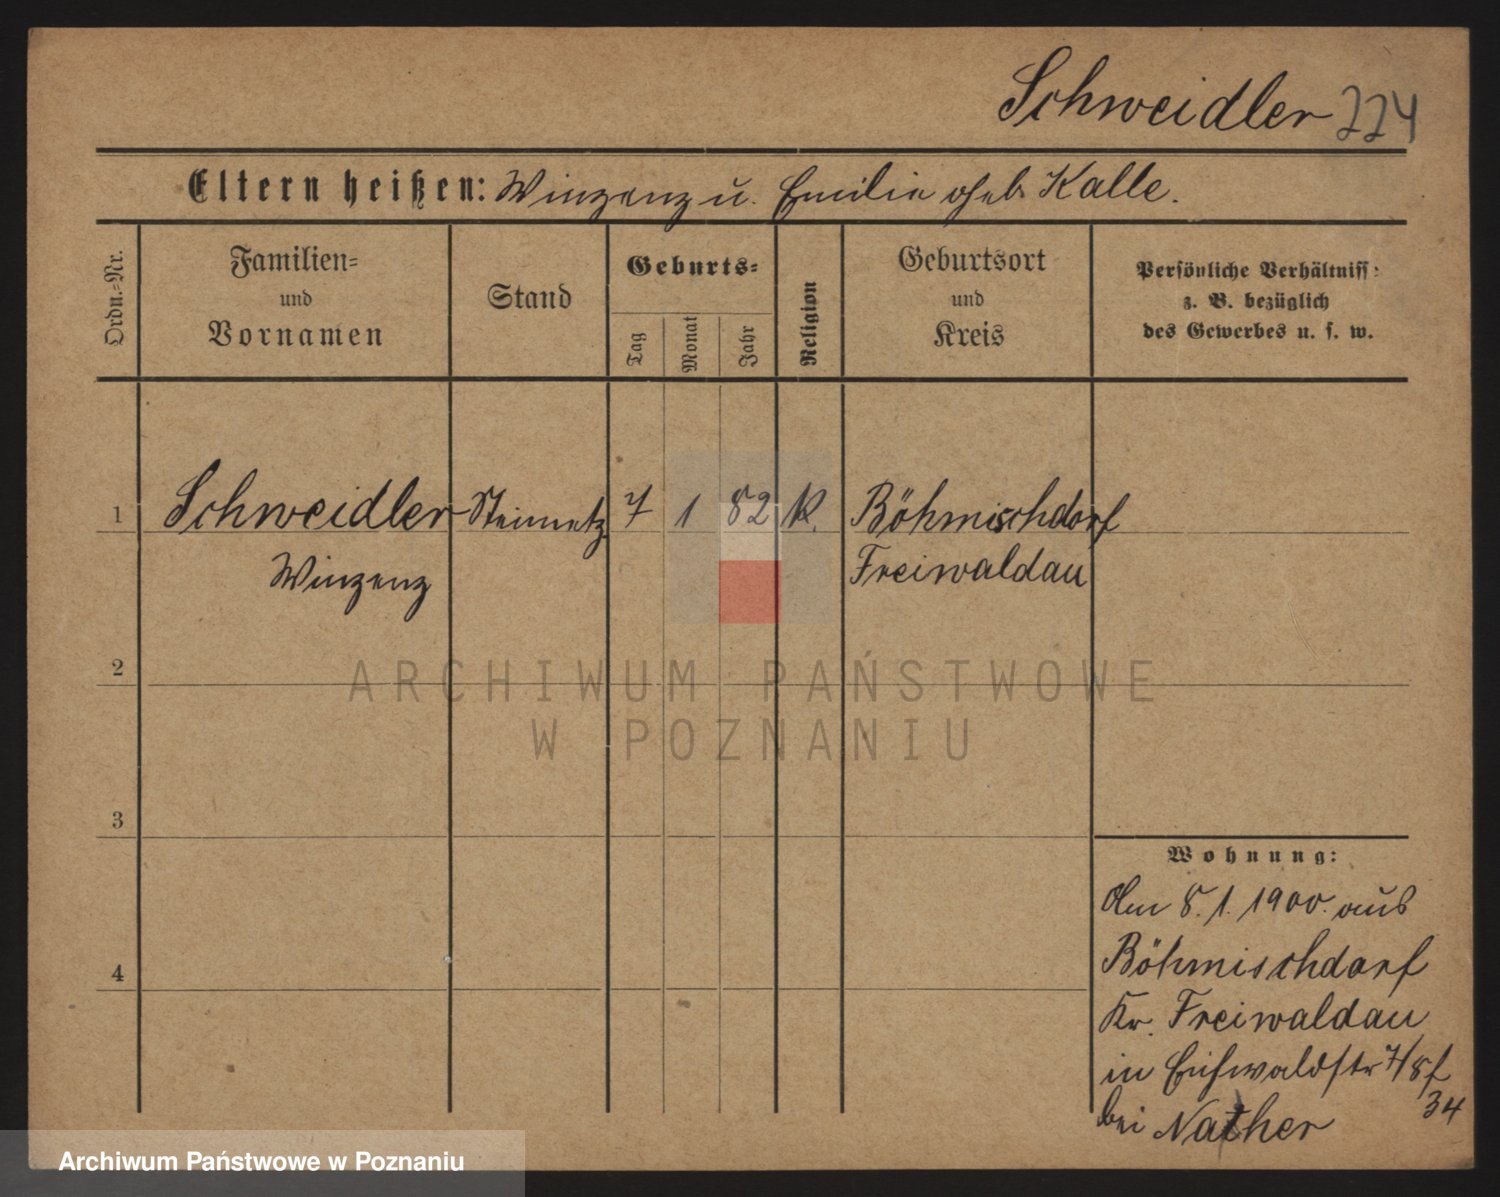 Schweidler 224
Eltern heißen: Winzenz u. Emilie geb. Kalle.
Ordn.-Nr.
Familien-
und
Vornamen
Stand
Geburts-
Tag
Monat
Jahr
Religion
Geburtsort
und
Kreis
Persönliche Verhältniss:
z. B. bezüglich
des Gewerbes u. s. w.
1 Schweidler Steinmetz 7 1 82 K. Böhmischdorf
Winzenz Freiwaldau
2
3
4
Wohnung:
Am 8.1.1900. aus
Böhmischdorf
Kr. Freiwaldau
in Eichwaldstr 7/8 f
34
bei Nather
ARCHIWUM PAŃSTWOWE
W POZNANIU
Archiwum Państwowe w Poznaniu